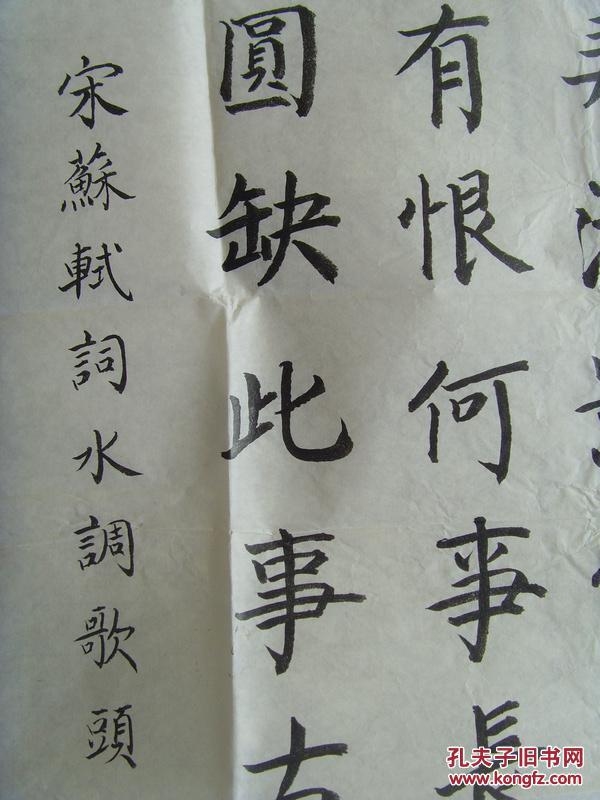 有恨何事長
圓缺此事古
宋蘇軾詞水調歌頭
孔夫子旧书网
www.kongfz.com